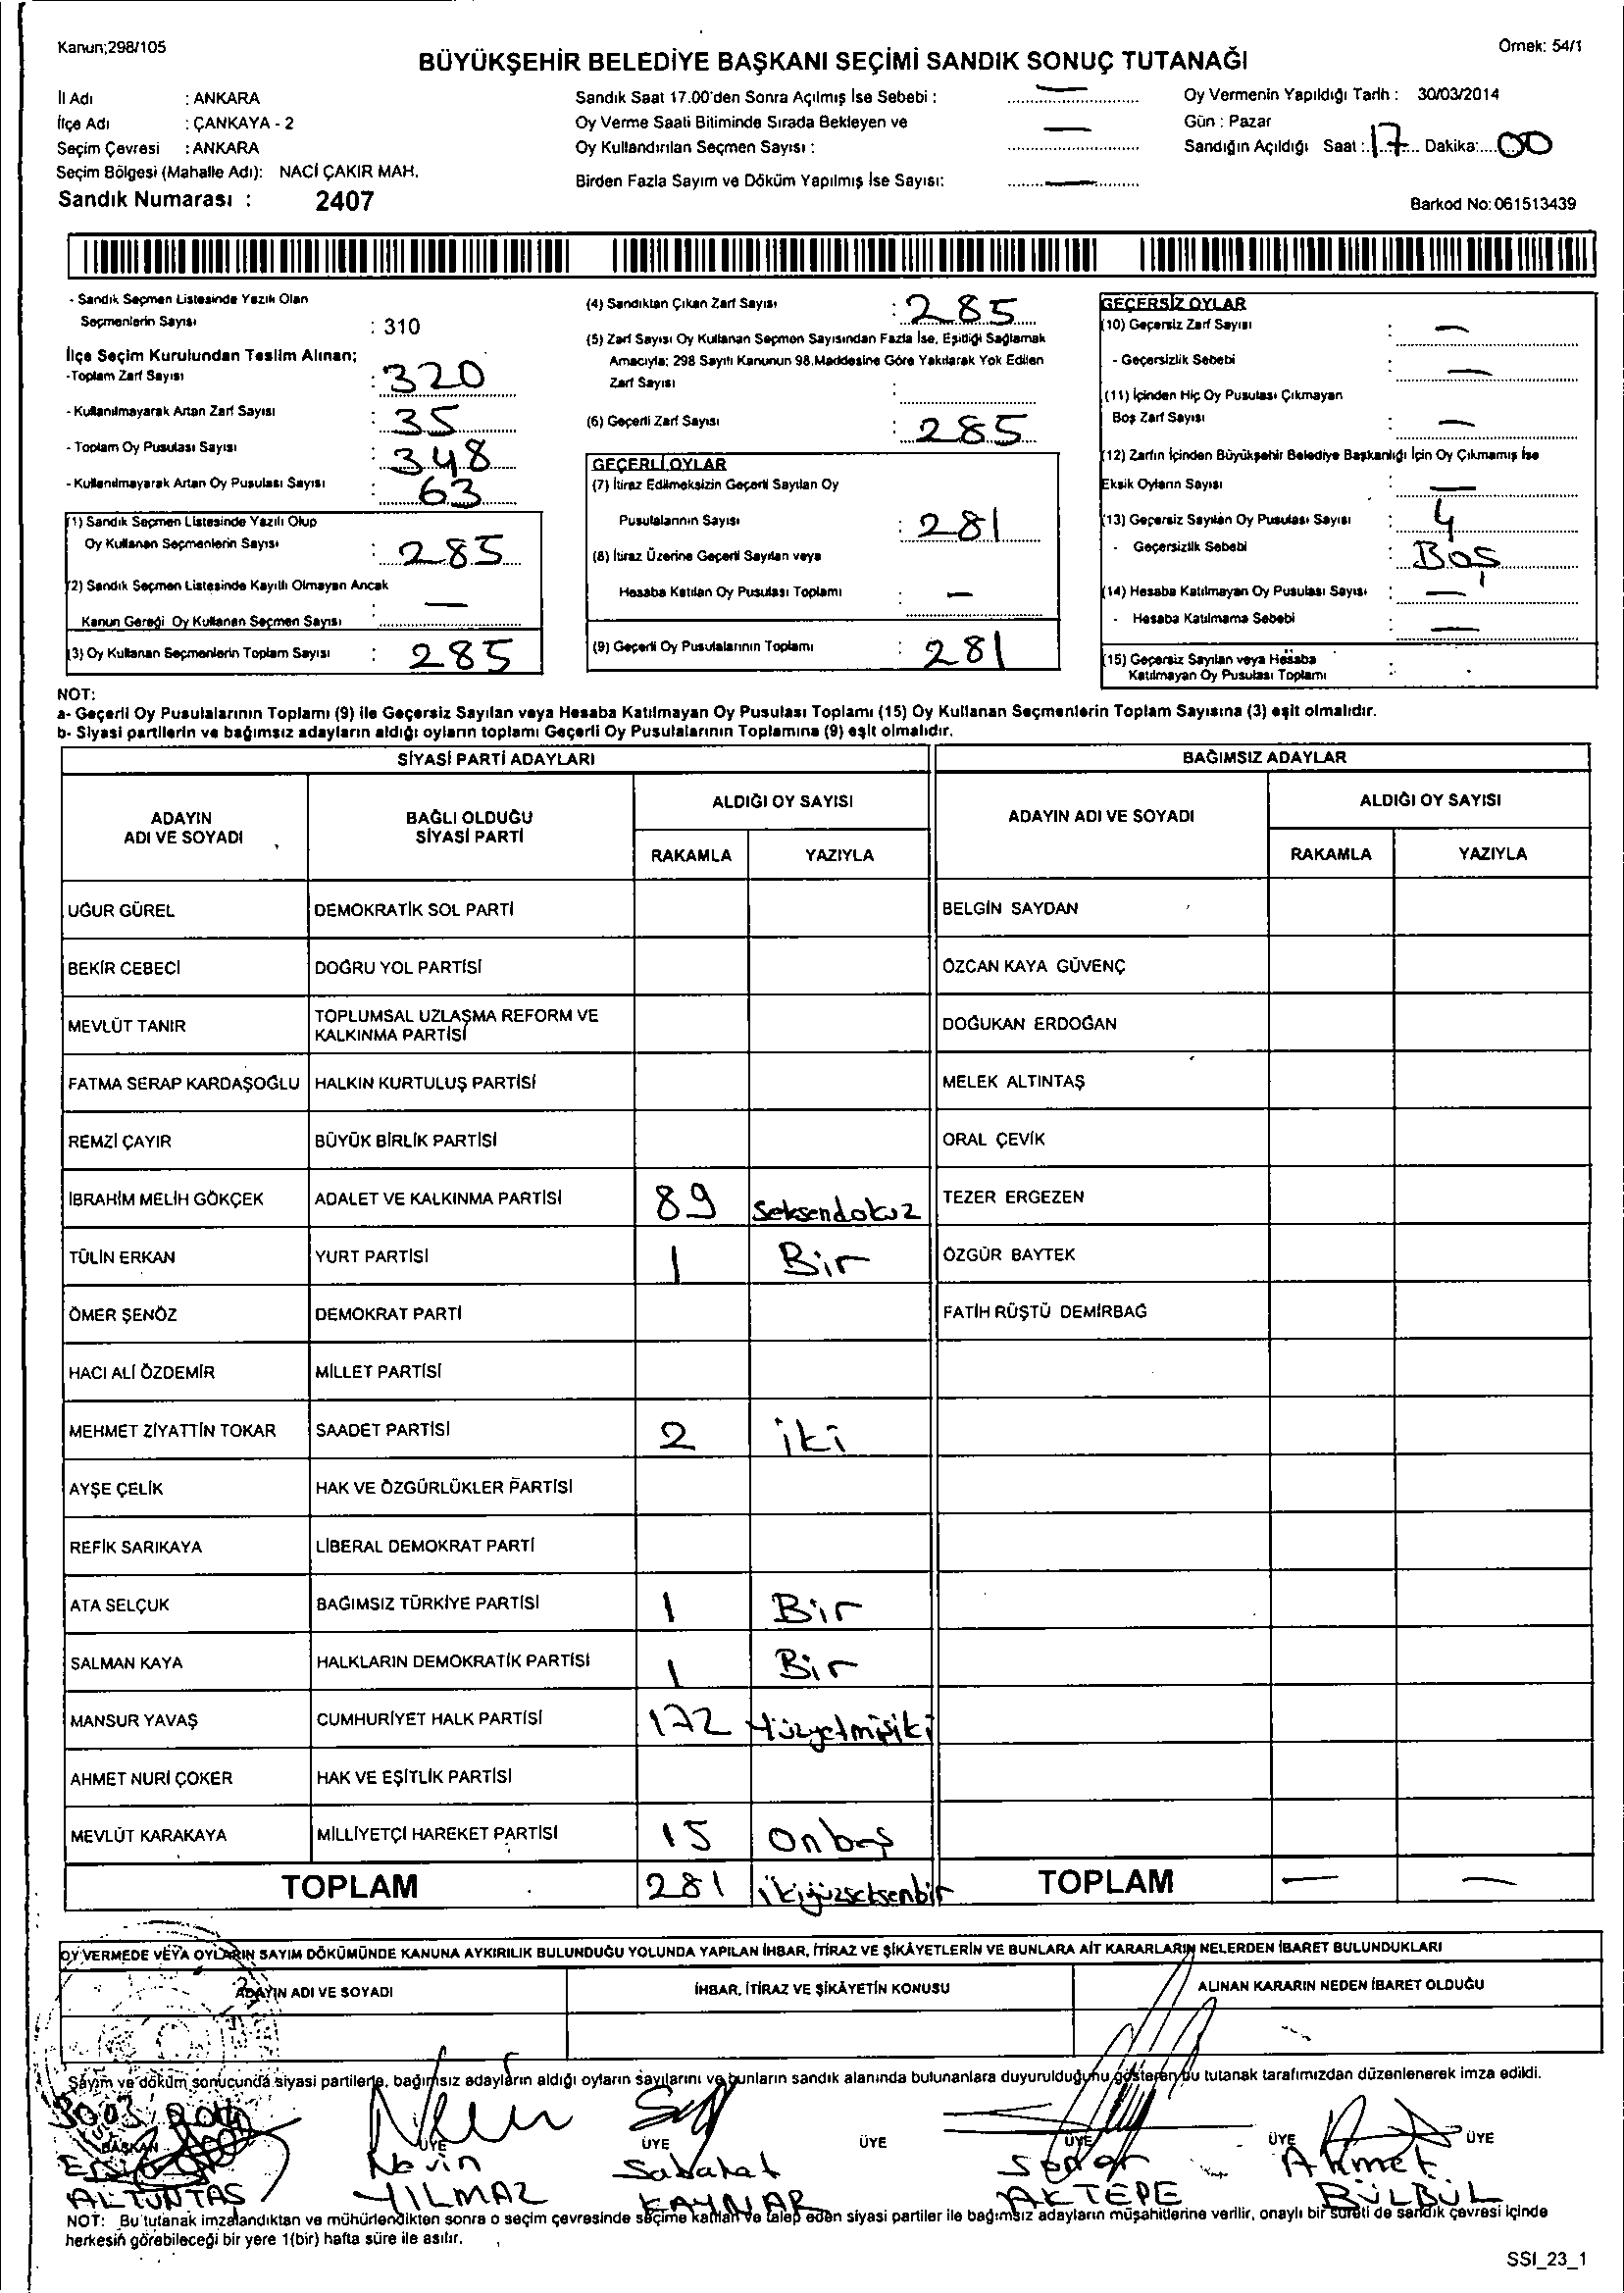 Kanun;298/105
Örnek: 54/1
BÜYÜKŞEHİR BELEDİYE BAŞKANI SEÇİMİ SANDIK SONUÇ TUTANAĞI
İl Adı : ANKARA
İlçe Adı : ÇANKAYA - 2
Seçim Çevresi : ANKARA
Seçim Bölgesi (Mahalle Adı): NACİ ÇAKIR MAH.
Sandık Numarası : 2407
Sandık Saat 17.00'den Sonra Açılmış İse Sebebi : —
Oy Verme Saati Bitiminde Sırada Bekleyen ve
Oy Kullandırılan Seçmen Sayısı : —
Birden Fazla Sayım ve Döküm Yapılmış İse Sayısı: —
Oy Vermenin Yapıldığı Tarih : 30/03/2014
Gün : Pazar
Sandığın Açıldığı Saat : 17 Dakika: 00
Barkod No: 061513439
- Sandık Seçmen Listesinde Yazılı Olan
Seçmenlerin Sayısı : 310
İlçe Seçim Kurulundan Teslim Alınan;
-Toplam Zarf Sayısı : 320
- Kullanılmayarak Artan Zarf Sayısı : 35
- Toplam Oy Pusulası Sayısı : 348
- Kullanılmayarak Artan Oy Pusulası Sayısı : 63
(1) Sandık Seçmen Listesinde Yazılı Olup
Oy Kullanan Seçmenlerin Sayısı : 285
(2) Sandık Seçmen Listesinde Kayıtlı Olmayan Ancak
Kanun Gereği Oy Kullanan Seçmen Sayısı : —
(3) Oy Kullanan Seçmenlerin Toplam Sayısı : 285
(4) Sandıktan Çıkan Zarf Sayısı : 285
(5) Zarf Sayısı Oy Kullanan Seçmen Sayısından Fazla İse, Eşitliği Sağlamak
Amacıyla; 298 Sayılı Kanunun 98.Maddesine Göre Yakılarak Yok Edilen
Zarf Sayısı :
(6) Geçerli Zarf Sayısı : 285
GEÇERLİ OYLAR
(7) İtiraz Edilmeksizin Geçerli Sayılan Oy
Pusulalarının Sayısı : 281
(8) İtiraz Üzerine Geçerli Sayılan veya
Hesaba Katılan Oy Pusulası Toplamı : —
(9) Geçerli Oy Pusulalarının Toplamı : 281
GEÇERSİZ OYLAR
(10) Geçersiz Zarf Sayısı : —
- Geçersizlik Sebebi : —
(11) İçinden Hiç Oy Pusulası Çıkmayan
Boş Zarf Sayısı : —
(12) Zarfın İçinden Büyükşehir Belediye Başkanlığı İçin Oy Çıkmamış İse
Eksik Oyların Sayısı : —
(13) Geçersiz Sayılan Oy Pusulası Sayısı : 4
- Geçersizlik Sebebi : Boş
(14) Hesaba Katılmayan Oy Pusulası Sayısı : —
- Hesaba Katılmama Sebebi : —
(15) Geçersiz Sayılan veya Hesaba
Katılmayan Oy Pusulası Toplamı :
NOT:
a- Geçerli Oy Pusulalarının Toplamı (9) ile Geçersiz Sayılan veya Hesaba Katılmayan Oy Pusulası Toplamı (15) Oy Kullanan Seçmenlerin Toplam Sayısına (3) eşit olmalıdır.
b- Siyasi partilerin ve bağımsız adayların aldığı oyların toplamı Geçerli Oy Pusulalarının Toplamına (9) eşit olmalıdır.
SİYASİ PARTİ ADAYLARI BAĞIMSIZ ADAYLAR
ADAYIN ADI VE SOYADI BAĞLI OLDUĞU SİYASİ PARTİ ALDIĞI OY SAYISI ADAYIN ADI VE SOYADI ALDIĞI OY SAYISI
RAKAMLA YAZIYLA RAKAMLA YAZIYLA
UĞUR GÜREL DEMOKRATİK SOL PARTİ BELGİN SAYDAN
BEKİR CEBECİ DOĞRU YOL PARTİSİ ÖZCAN KAYA GÜVENÇ
MEVLÜT TANIR TOPLUMSAL UZLAŞMA REFORM VE KALKINMA PARTİSİ DOĞUKAN ERDOĞAN
FATMA SERAP KARDAŞOĞLU HALKIN KURTULUŞ PARTİSİ MELEK ALTINTAŞ
REMZİ ÇAYIR BÜYÜK BİRLİK PARTİSİ ORAL ÇEVİK
İBRAHİM MELİH GÖKÇEK ADALET VE KALKINMA PARTİSİ 89 Seksendokuz TEZER ERGEZEN
TÜLİN ERKAN YURT PARTİSİ 1 Bir ÖZGÜR BAYTEK
ÖMER ŞENÖZ DEMOKRAT PARTİ FATİH RÜŞTÜ DEMİRBAĞ
HACI ALİ ÖZDEMİR MİLLET PARTİSİ
MEHMET ZİYATTİN TOKAR SAADET PARTİSİ 2 iki
AYŞE ÇELİK HAK VE ÖZGÜRLÜKLER PARTİSİ
REFİK SARIKAYA LİBERAL DEMOKRAT PARTİ
ATA SELÇUK BAĞIMSIZ TÜRKİYE PARTİSİ 1 Bir
SALMAN KAYA HALKLARIN DEMOKRATİK PARTİSİ 1 Bir
MANSUR YAVAŞ CUMHURİYET HALK PARTİSİ 172 Yüzyetmişiki
AHMET NURİ ÇOKER HAK VE EŞİTLİK PARTİSİ
MEVLÜT KARAKAYA MİLLİYETÇİ HAREKET PARTİSİ 15 Onbeş
TOPLAM 281 ikiyüzseksenbir TOPLAM — —
OY VERMEDE VEYA OYLARIN SAYIM DÖKÜMÜNDE KANUNA AYKIRILIK BULUNDUĞU YOLUNDA YAPILAN İHBAR, İTİRAZ VE ŞİKÂYETLERİN VE BUNLARA AİT KARARLARIN NELERDEN İBARET BULUNDUKLARI
ADAYIN ADI VE SOYADI İHBAR, İTİRAZ VE ŞİKÂYETİN KONUSU ALINAN KARARIN NEDEN İBARET OLDUĞU
Sayım ve döküm sonucunda siyasi partilerle, bağımsız adayların aldığı oyların sayılarını ve bunların sandık alanında bulunanlara duyurulduğunu gösteren bu tutanak tarafımızdan düzenlenerek imza edildi.
BAŞKAN ÜYE ÜYE ÜYE ÜYE ÜYE ÜYE
Nevin Sabahat Ahmet
ALTUNTAŞ YILMAZ KAYNAR AKTEPE BÜLBÜL
NOT: Bu tutanak imzalandıktan ve mühürlendikten sonra o seçim çevresinde seçime katılan ve talep eden siyasi partiler ile bağımsız adayların müşahitlerine verilir, onaylı bir sureti de sandık çevresi içinde
herkesin görebileceği bir yere 1(bir) hafta süre ile asılır.
SSI_23_1